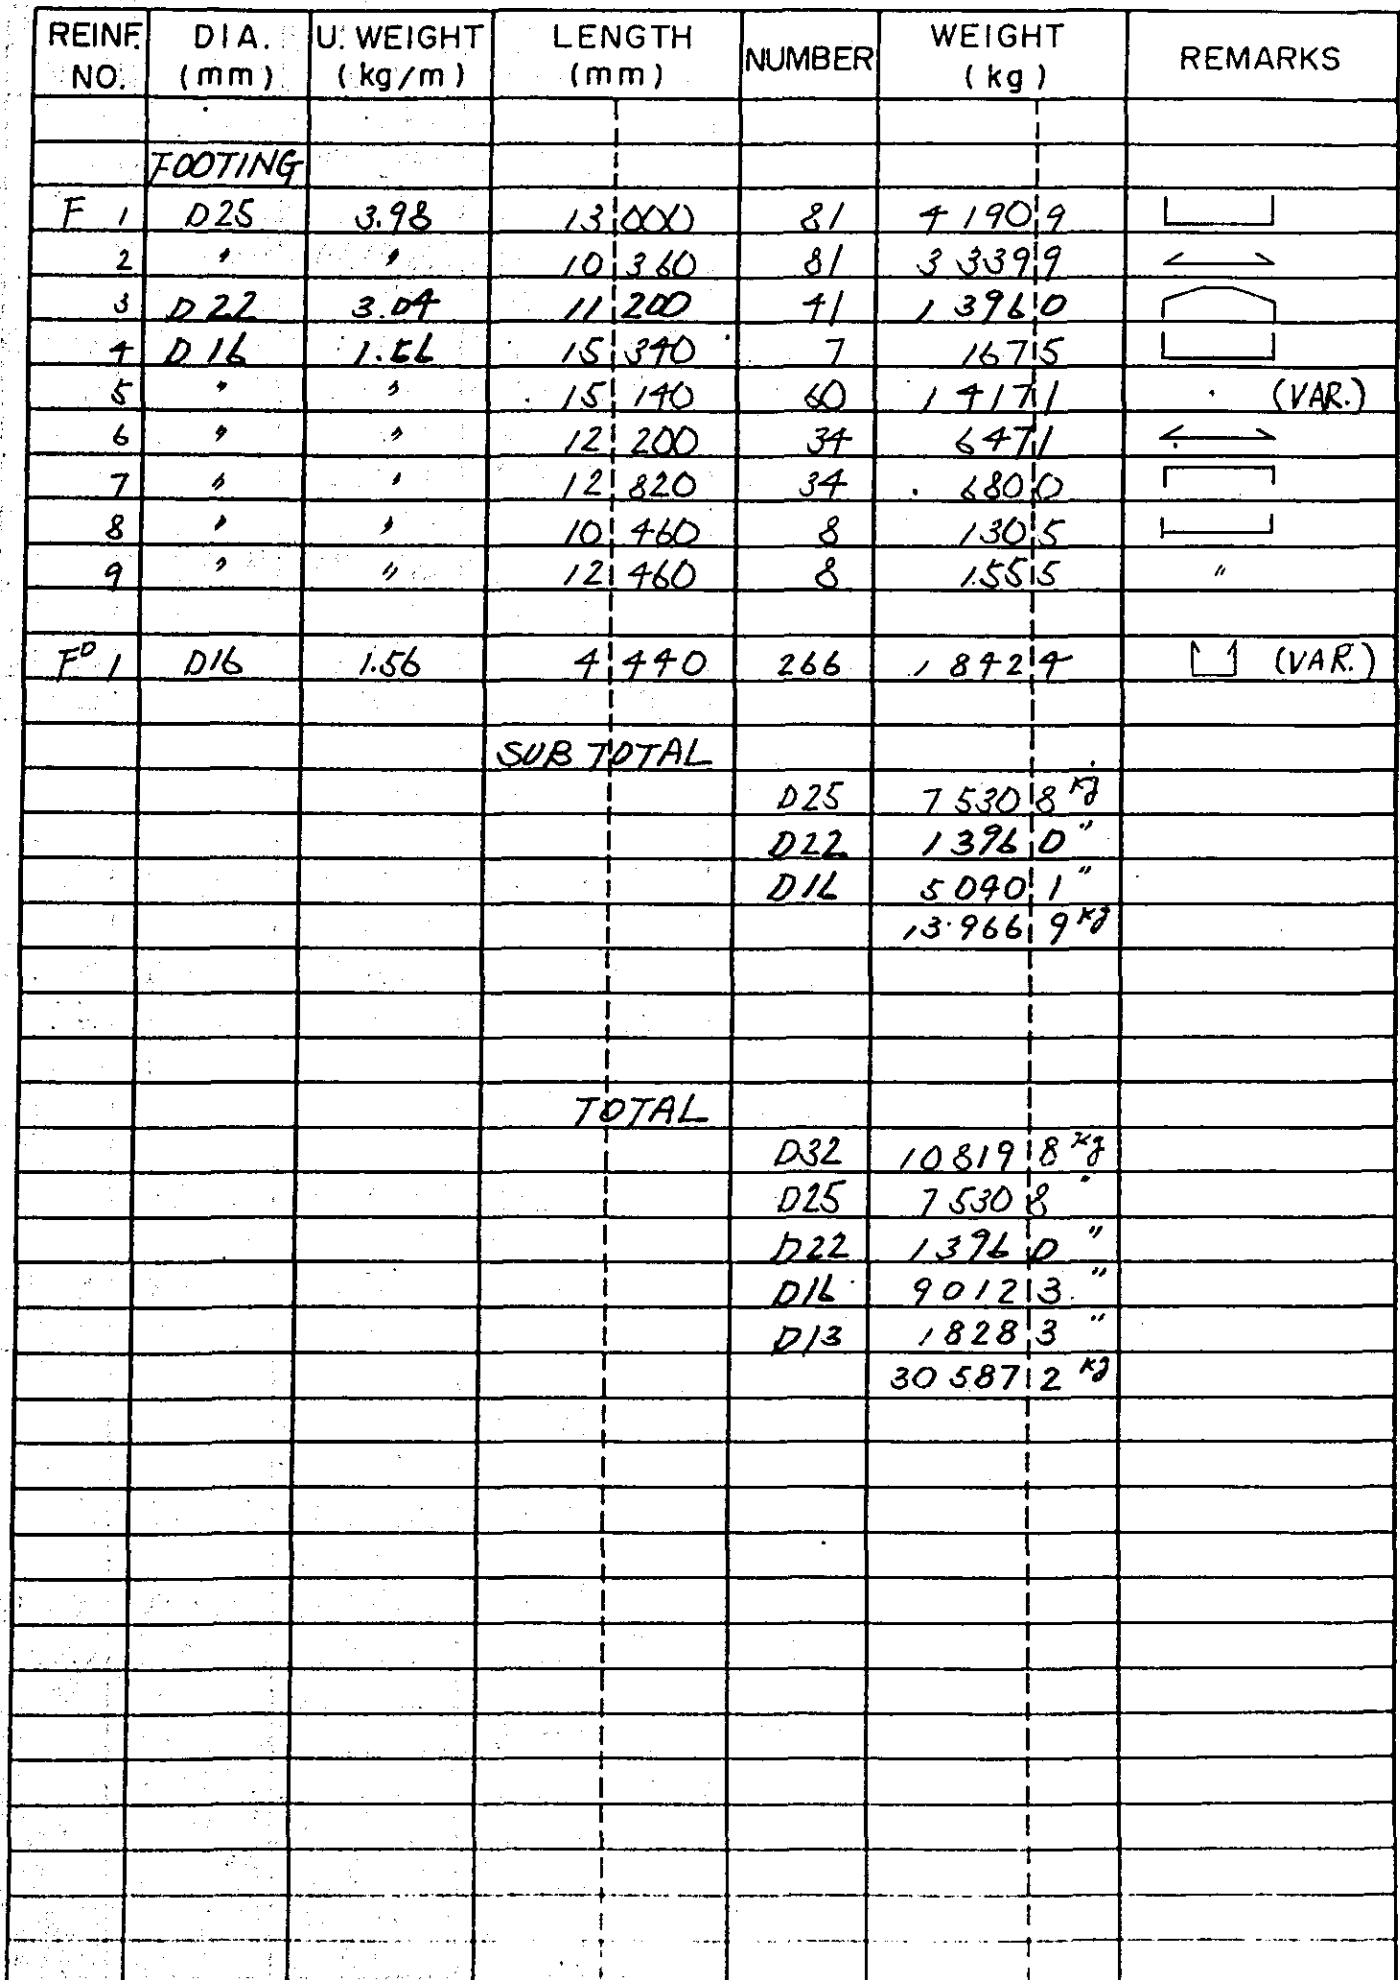 REINF. NO. DIA. (mm) U. WEIGHT (kg/m) LENGTH (mm) NUMBER WEIGHT (kg) REMARKS
FOOTING
F 1 D25 3.98 13 000 81 4 190 9
2 〃 〃 10 360 81 3 339 9
3 D22 3.04 11 200 41 1 396 0
4 D16 1.56 15 340 7 167 5
5 〃 〃 15 140 60 1 417 1 〃 (VAR.)
6 〃 〃 12 200 34 647 1
7 〃 〃 12 820 34 680 0
8 〃 〃 10 460 8 130 5
9 〃 〃 12 460 8 155 5 〃
F^D 1 D16 1.56 4 440 266 1 842 4 (VAR.)
SUB TOTAL
D25 7 530 8 kg
D22 1 396 0 〃
D16 5 040 1 〃
13 966 9 kg
TOTAL
D32 10 819 8 kg
D25 7 530 8 〃
D22 1 396 0 〃
D16 9 012 3 〃
D13 1 828 3 〃
30 587 2 kg